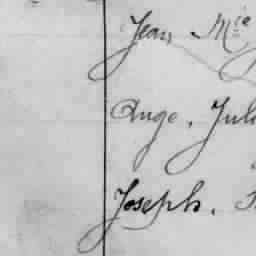 Jean Mie
Ange. Jul
Joseph.